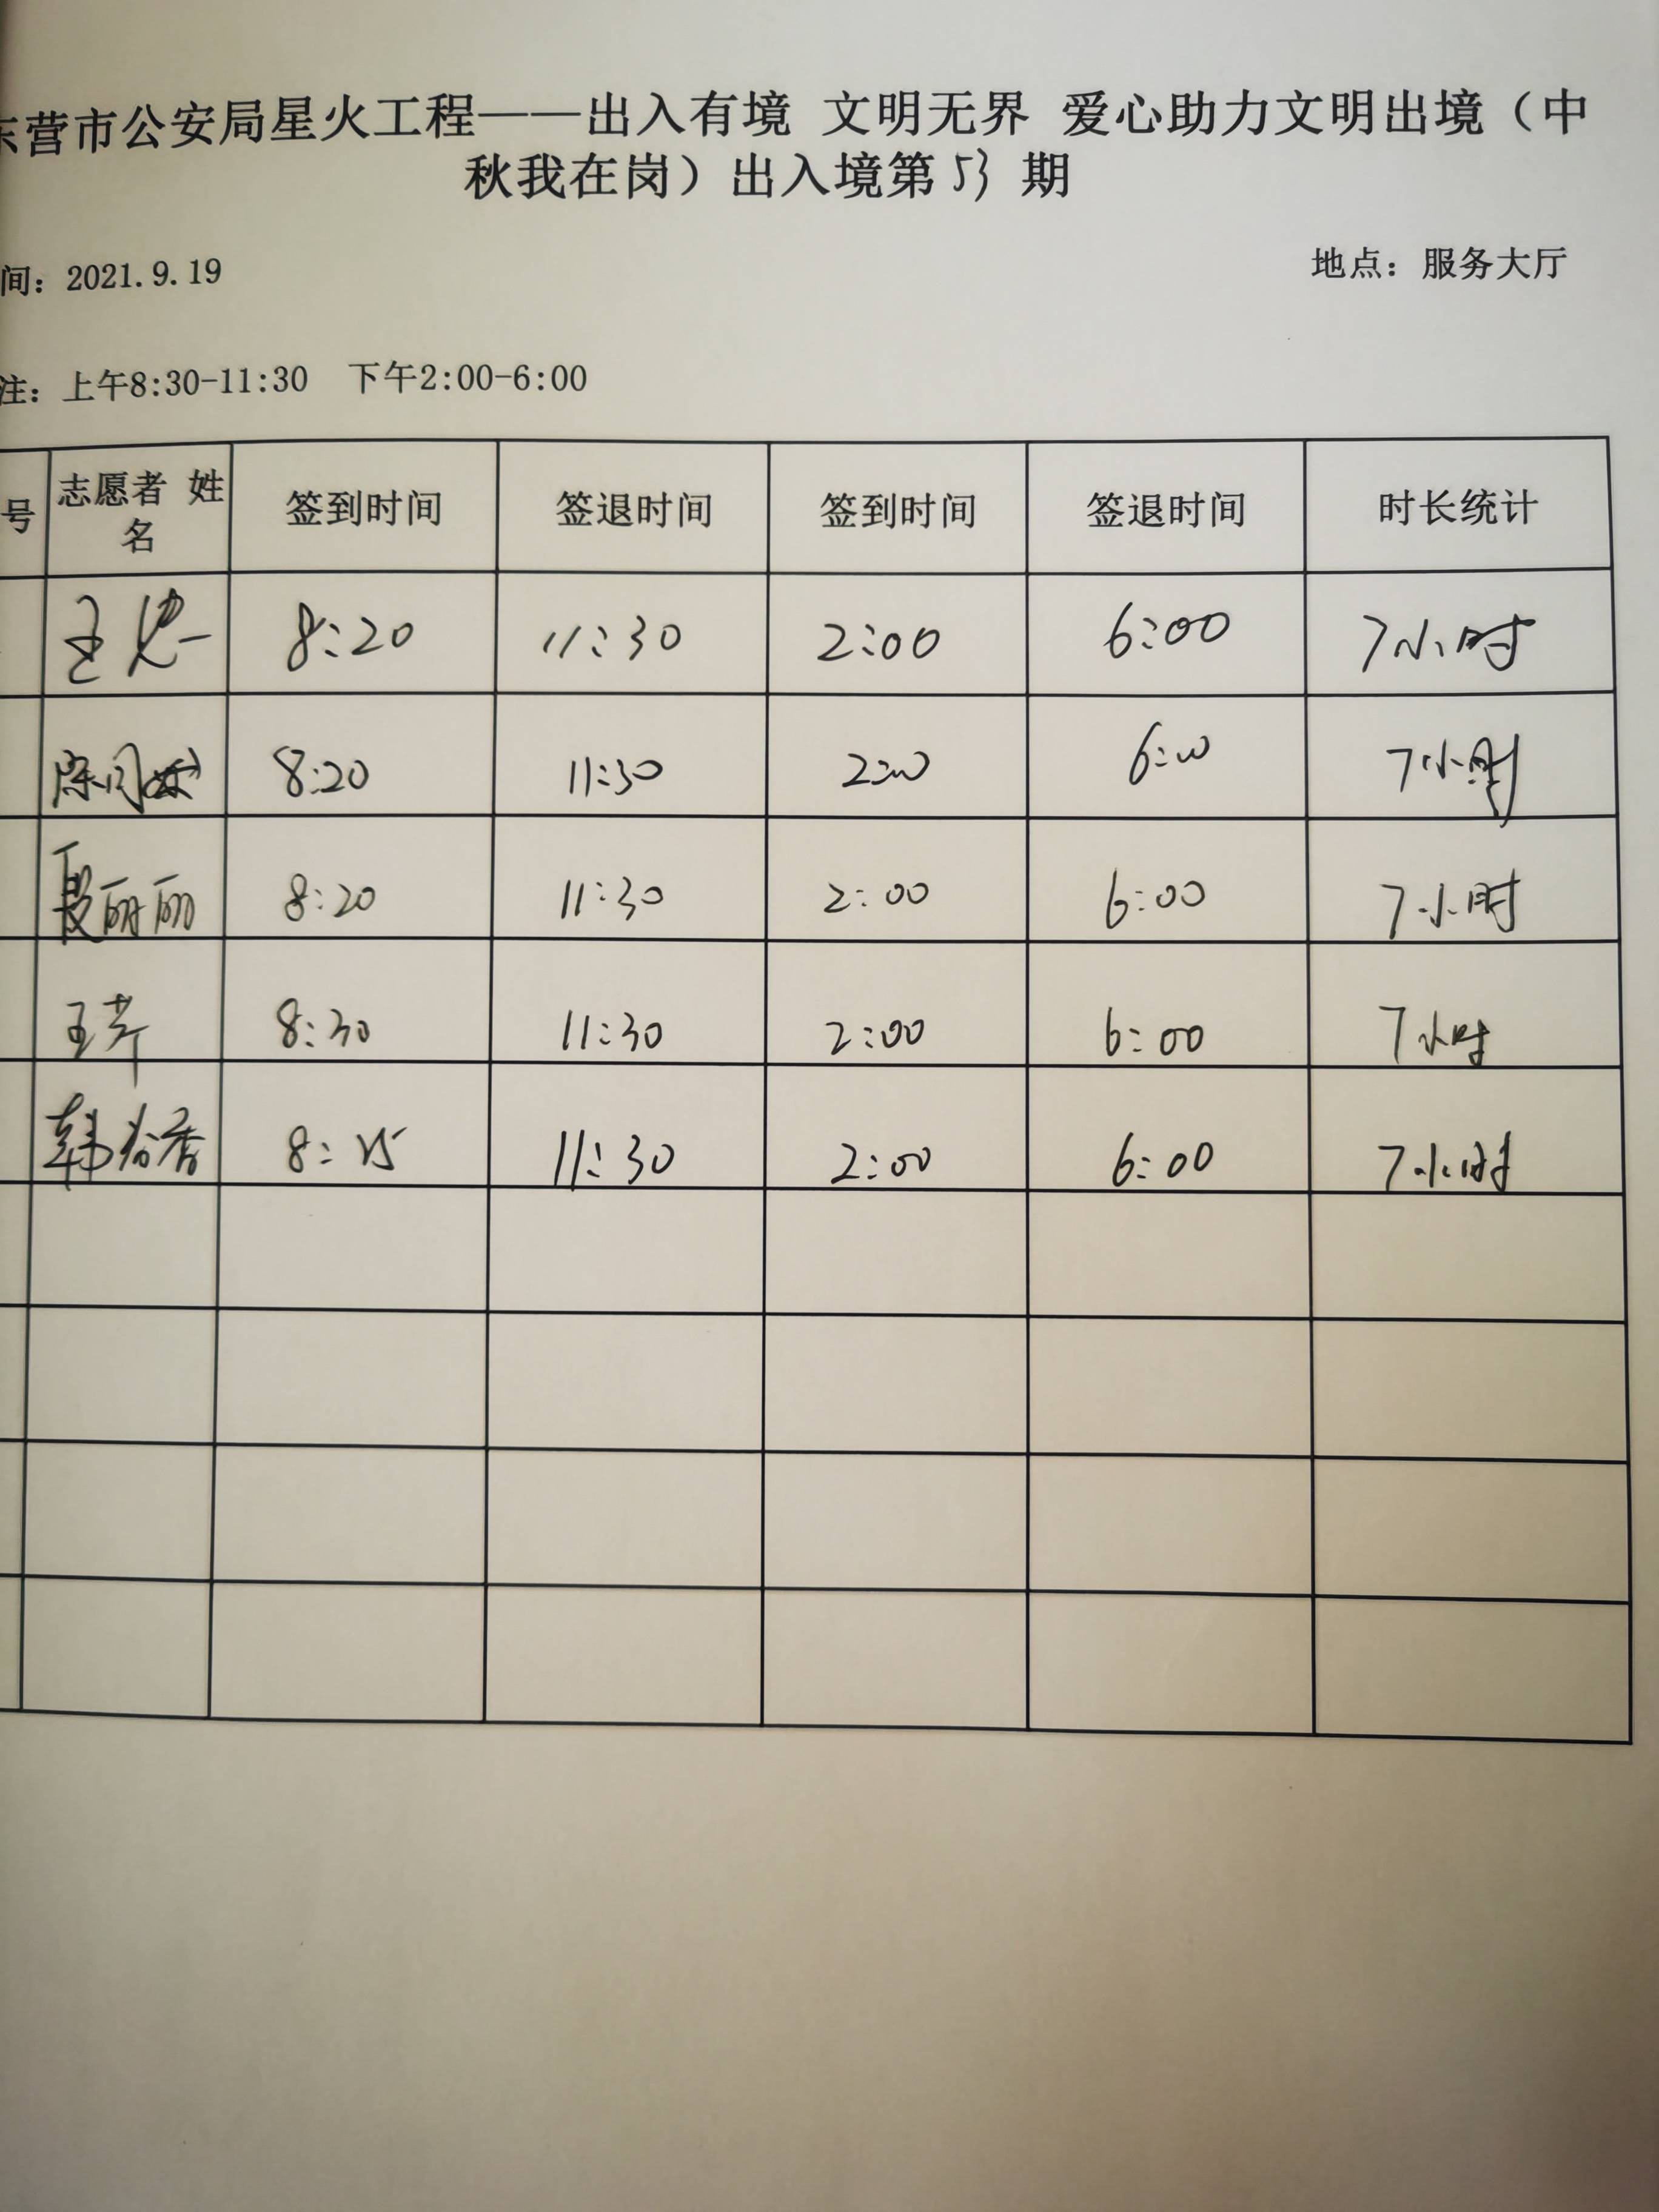 东营市公安局星火工程——出入有境 文明无界 爱心助力文明出境（中
秋我在岗）出入境第53期
间：2021.9.19 地点：服务大厅
注：上午8:30-11:30 下午2:00-6:00
号 志愿者 姓名 签到时间 签退时间 签到时间 签退时间 时长统计
王 8:20 11:30 2:00 6:00 7小时
陈 8:20 11:30 2:00 6:00 7小时
夏丽丽 8:20 11:30 2:00 6:00 7小时
王芹 8:30 11:30 2:00 6:00 7小时
韩 香 8:15 11:30 2:00 6:00 7小时